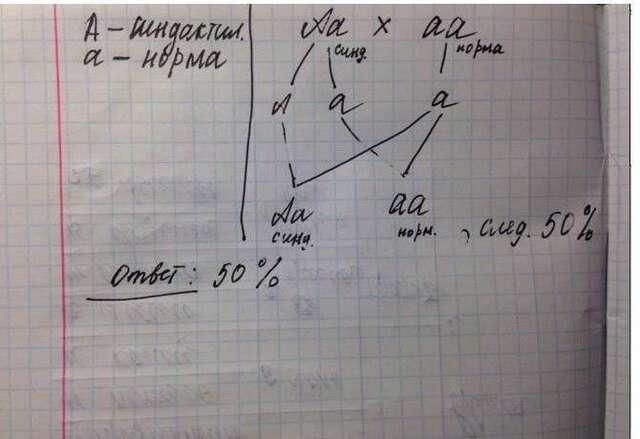 А – синдактил.
а – норма
Аа × аа
синд. норма
А а а
Аа аа
синд. норм.
, след. 50%
Ответ: 50%